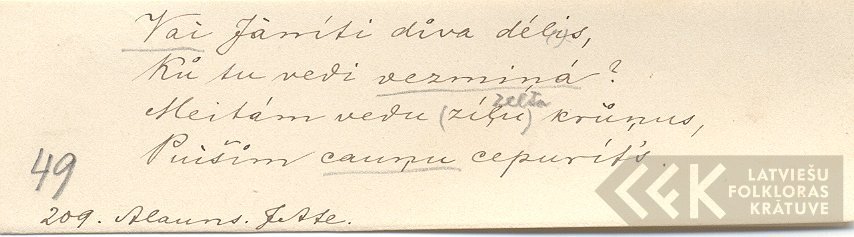 Vai Jāniti dīva déliņs,
Ků tu vedi vezmiņá?
zelta
Meitám vedu (zíļu) krůņus,
Puišim cauņu cepurít's
49
209. Alauns. J. Ate.
LATVIEŠU
FOLKLORAS
KRĀTUVE